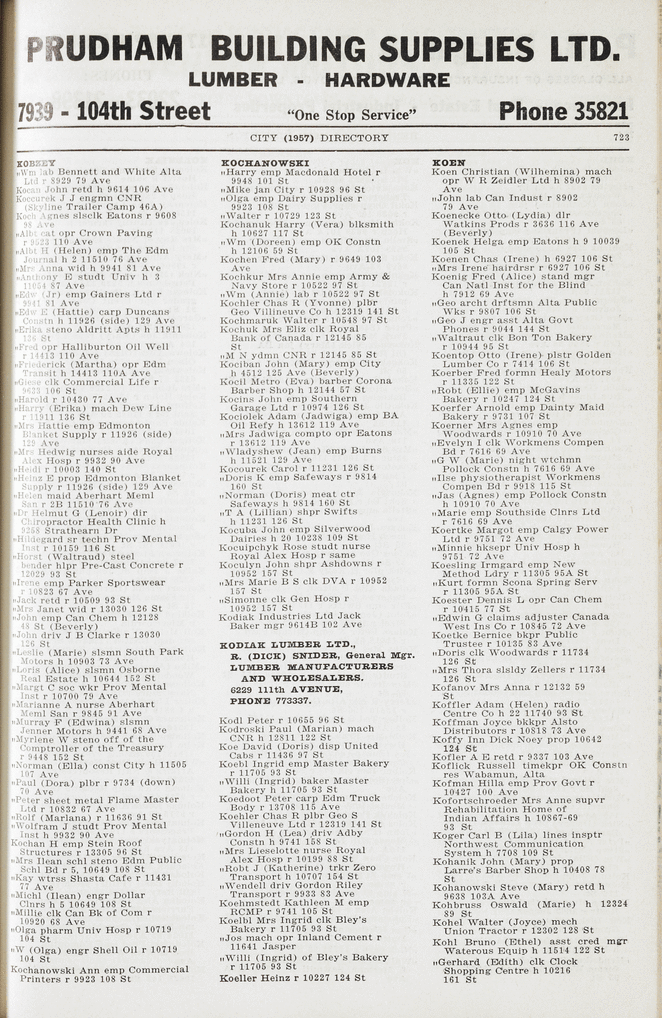 PRUDHAM BUILDING SUPPLIES LTD.
LUMBER - HARDWARE
7939 - 104th Street "One Stop Service" Phone 35821
CITY (1957) DIRECTORY 723
KOBZEY
"Wm lab Bennett and White Alta
Ltd r 8929 79 Ave
Kocan John retd h 9614 106 Ave
Koccurek J J engmn CNR
(Skyline Trailer Camp 46A)
Koch Agnes slsclk Eatons r 9608
98 Ave
"Albt cat opr Crown Paving
r 9523 110 Ave
"Albt H (Helen) emp The Edm
Journal h 2 11510 76 Ave
"Mrs Anna wid h 9941 81 Ave
"Anthony E studt Univ h 3
11054 87 Ave
"Edw (Jr) emp Gainers Ltd r
9941 81 Ave
"Edw E (Hattie) carp Duncans
Constn h 11926 (side) 129 Ave
"Erika steno Aldritt Apts h 11911
136 St
"Fred opr Halliburton Oil Well
r 14413 110 Ave
"Friederick (Martha) opr Edm
Transit h 14413 110A Ave
"Giese clk Commercial Life r
9623 106 St
"Harold r 10430 77 Ave
"Harry (Erika) mach Dew Line
r 11911 136 St
"Mrs Hattie emp Edmonton
Blanket Supply r 11926 (side)
129 Ave
"Mrs Hedwig nurses aide Royal
Alex Hosp r 9932 90 Ave
"Heidi r 10003 140 St
"Heinz E prop Edmonton Blanket
Supply r 11926 (side) 129 Ave
"Helen maid Aberhart Meml
San r 2B 11510 76 Ave
"Dr Helmut G (Lenoir) dir
Chiropractor Health Clinic h
9258 Strathearn Dr
"Hildegard sr techn Prov Mental
Inst r 10159 116 St
"Horst (Waltraud) steel
bender hlpr Pre-Cast Concrete r
12029 93 St
"Irene emp Parker Sportswear
r 10823 67 Ave
"Jack retd r 10509 93 St
"Mrs Janet wid r 13030 126 St
"John emp Can Chem h 12128
48 St (Beverly)
"John driv J B Clarke r 13030
126 St
"Leslie (Marie) slsmn South Park
Motors h 10903 73 Ave
"Loris (Alice) slsmn Osborne
Real Estate h 10644 152 St
"Margt C soc wkr Prov Mental
Inst r 10700 79 Ave
"Marianne A nurse Aberhart
Meml San r 9845 91 Ave
"Murray F (Edwina) slsmn
Jenner Motors h 9441 68 Ave
"Myrlene W steno off of the
Comptroller of the Treasury
r 9448 152 St
"Norman (Ella) const City h 11505
107 Ave
"Paul (Dora) plbr r 9734 (down)
70 Ave
"Peter sheet metal Flame Master
Ltd r 10832 67 Ave
"Rolf (Marlana) r 11636 91 St
"Wolfram J studt Prov Mental
Inst h 9932 90 Ave
Kochan H emp Stein Roof
Structures r 13305 96 St
"Mrs Ilean schl steno Edm Public
Schl Bd r 5, 10649 108 St
"Kay wtrss Shasta Cafe r 11431
77 Ave
"Michl (Ilean) engr Dollar
Clnrs h 5 10649 108 St
"Millie clk Can Bk of Com r
10920 68 Ave
"Olga pharm Univ Hosp r 10719
104 St
"W (Olga) engr Shell Oil r 10719
104 St
Kochanowski Ann emp Commercial
Printers r 9923 108 St
KOCHANOWSKI
"Harry emp Macdonald Hotel r
9948 101 St
"Mike jan City r 10928 96 St
"Olga emp Dairy Supplies r
9923 108 St
"Walter r 10729 123 St
Kochanuk Harry (Vera) blksmith
h 10627 117 St
"Wm (Doreen) emp OK Constn
h 12106 59 St
Kochen Fred (Mary) r 9649 103
Ave
Kochkur Mrs Annie emp Army &
Navy Store r 10522 97 St
"Wm (Annie) lab r 10522 97 St
Kochler Chas R (Yvonne) plbr
Geo Villineuve Co h 12319 141 St
Kochmaruk Walter r 10548 97 St
Kochuk Mrs Eliz clk Royal
Bank of Canada r 12145 85
St
"M N ydmn CNR r 12145 85 St
Kociban John (Mary) emp City
h 4512 125 Ave (Beverly)
Kocil Metro (Eva) barber Corona
Barber Shop h 12144 57 St
Kocins John emp Southern
Garage Ltd r 10974 126 St
Kociolek Adam (Jadwiga) emp BA
Oil Refy h 13612 119 Ave
"Mrs Jadwiga compto opr Eatons
r 13612 119 Ave
"Wladyshew (Jean) emp Burns
h 11521 129 Ave
Kocourek Carol r 11231 126 St
"Doris K emp Safeways r 9814
160 St
"Norman (Doris) meat ctr
Safeways h 9814 160 St
"T A (Lillian) shpr Swifts
h 11231 126 St
Kocuba John emp Silverwood
Dairies h 20 10238 109 St
Kocuipchyk Rose studt nurse
Royal Alex Hosp r same
Koculyn John shpr Ashdowns r
10952 157 St
"Mrs Marie B S clk DVA r 10952
157 St
"Simonne clk Gen Hosp r
10952 157 St
Kodiak Industries Ltd Jack
Baker mgr 9614B 102 Ave
KODIAK LUMBER LTD.,
R. (DICK) SNIDER, General Mgr.
LUMBER MANUFACTURERS
AND WHOLESALERS.
6229 111th AVENUE,
PHONE 773337.
Kodl Peter r 10655 96 St
Kodroski Paul (Marian) mach
CNR h 12811 122 St
Koe David (Doris) disp United
Cabs r 11436 97 St
Koebl Ingrid emp Master Bakery
r 11705 93 St
"Willi (Ingrid) baker Master
Bakery h 11705 93 St
Koedoot Peter carp Edm Truck
Body r 13708 115 Ave
Koehler Chas R plbr Geo S
Villeneuve Ltd r 12319 141 St
"Gordon H (Lea) driv Adby
Constn h 9741 158 St
"Mrs Lieselotte nurse Royal
Alex Hosp r 10199 88 St
"Robt J (Katherine) trkr Zero
Transport h 10707 154 St
"Wendell driv Gordon Riley
Transport r 9933 83 Ave
Koehmstedt Kathleen M emp
RCMP r 9741 105 St
Koelbl Mrs Ingrid clk Bley's
Bakery r 11705 93 St
"Jos mach opr Inland Cement r
11641 Jasper
"Willi (Ingrid) of Bley's Bakery
r 11705 93 St
Koeller Heinz r 10227 124 St
KOEN
Koen Christian (Wilhemina) mach
opr W R Zeidler Ltd h 8902 79
Ave
"John lab Can Indust r 8902
79 Ave
Koenecke Otto (Lydia) dlr
Watkins Prods r 3636 116 Ave
(Beverly)
Koenek Helga emp Eatons h 9 10039
105 St
Koenen Chas (Irene) h 6927 106 St
"Mrs Irene hairdrsr r 6927 106 St
Koenig Fred (Alice) stand mgr
Can Natl Inst for the Blind
h 7912 69 Ave
"Geo archt drftsmn Alta Public
Wks r 9807 106 St
"Geo J engr asst Alta Govt
Phones r 9044 144 St
"Waltraut clk Bon Ton Bakery
r 10944 95 St
Koentop Otto (Irene) plstr Golden
Lumber Co r 7414 106 St
Koerber Fred formn Healy Motors
r 11335 122 St
"Robt (Ellie) emp McGavins
Bakery r 10247 124 St
Koerfer Arnold emp Dainty Maid
Bakery r 9731 107 St
Koerner Mrs Agnes emp
Woodwards r 10910 70 Ave
"Evelyn I clk Workmens Compen
Bd r 7616 69 Ave
"G W (Marie) night wtchmn
Pollock Constn h 7616 69 Ave
"Ilse physiotherapist Workmens
Compen Bd r 9918 115 St
"Jas (Agnes) emp Pollock Constn
h 10910 70 Ave
"Marie emp Southside Clnrs Ltd
r 7616 69 Ave
Koertke Margot emp Calgy Power
Ltd r 9751 72 Ave
"Minnie hksepr Univ Hosp h
9751 72 Ave
Koesling Irmgard emp New
Method Ldry r 11305 95A St
"Kurt formn Scona Spring Serv
r 11305 95A St
Koester Dennis L opr Can Chem
r 10415 77 St
"Edwin G claims adjuster Canada
West Ins Co r 10845 72 Ave
Koetke Bernice bkpr Public
Trustee r 10135 83 Ave
"Doris clk Woodwards r 11734
126 St
"Mrs Thora slsldy Zellers r 11734
126 St
Kofanov Mrs Anna r 12132 59
St
Koffler Adam (Helen) radio
Centre Co h 22 11740 93 St
Koffman Joyce bkkpr Alsto
Distributors r 10818 73 Ave
Koffy Inn Dick Noey prop 10642
124 St
Kofler A E retd r 9337 103 Ave
Koflick Russell timekpr OK Constn
res Wabamun, Alta
Kofman Hilla emp Prov Govt r
10427 100 Ave
Kofortschroeder Mrs Anne supvr
Rehabilitation Home of
Indian Affairs h 10867-69
93 St
Koger Carl B (Lila) lines insptr
Northwest Communication
System h 7708 109 St
Kohanik John (Mary) prop
Larre's Barber Shop h 10408 78
St
Kohanowski Steve (Mary) retd h
9638 103A Ave
Kohbruss Oswald (Marie) h 12324
89 St
Kohel Walter (Joyce) mech
Union Tractor r 12302 128 St
Kohl Bruno (Ethel) asst cred mgr
Waterous Equip h 11514 122 St
"Gerhard (Edith) clk Clock
Shopping Centre h 10216
161 St